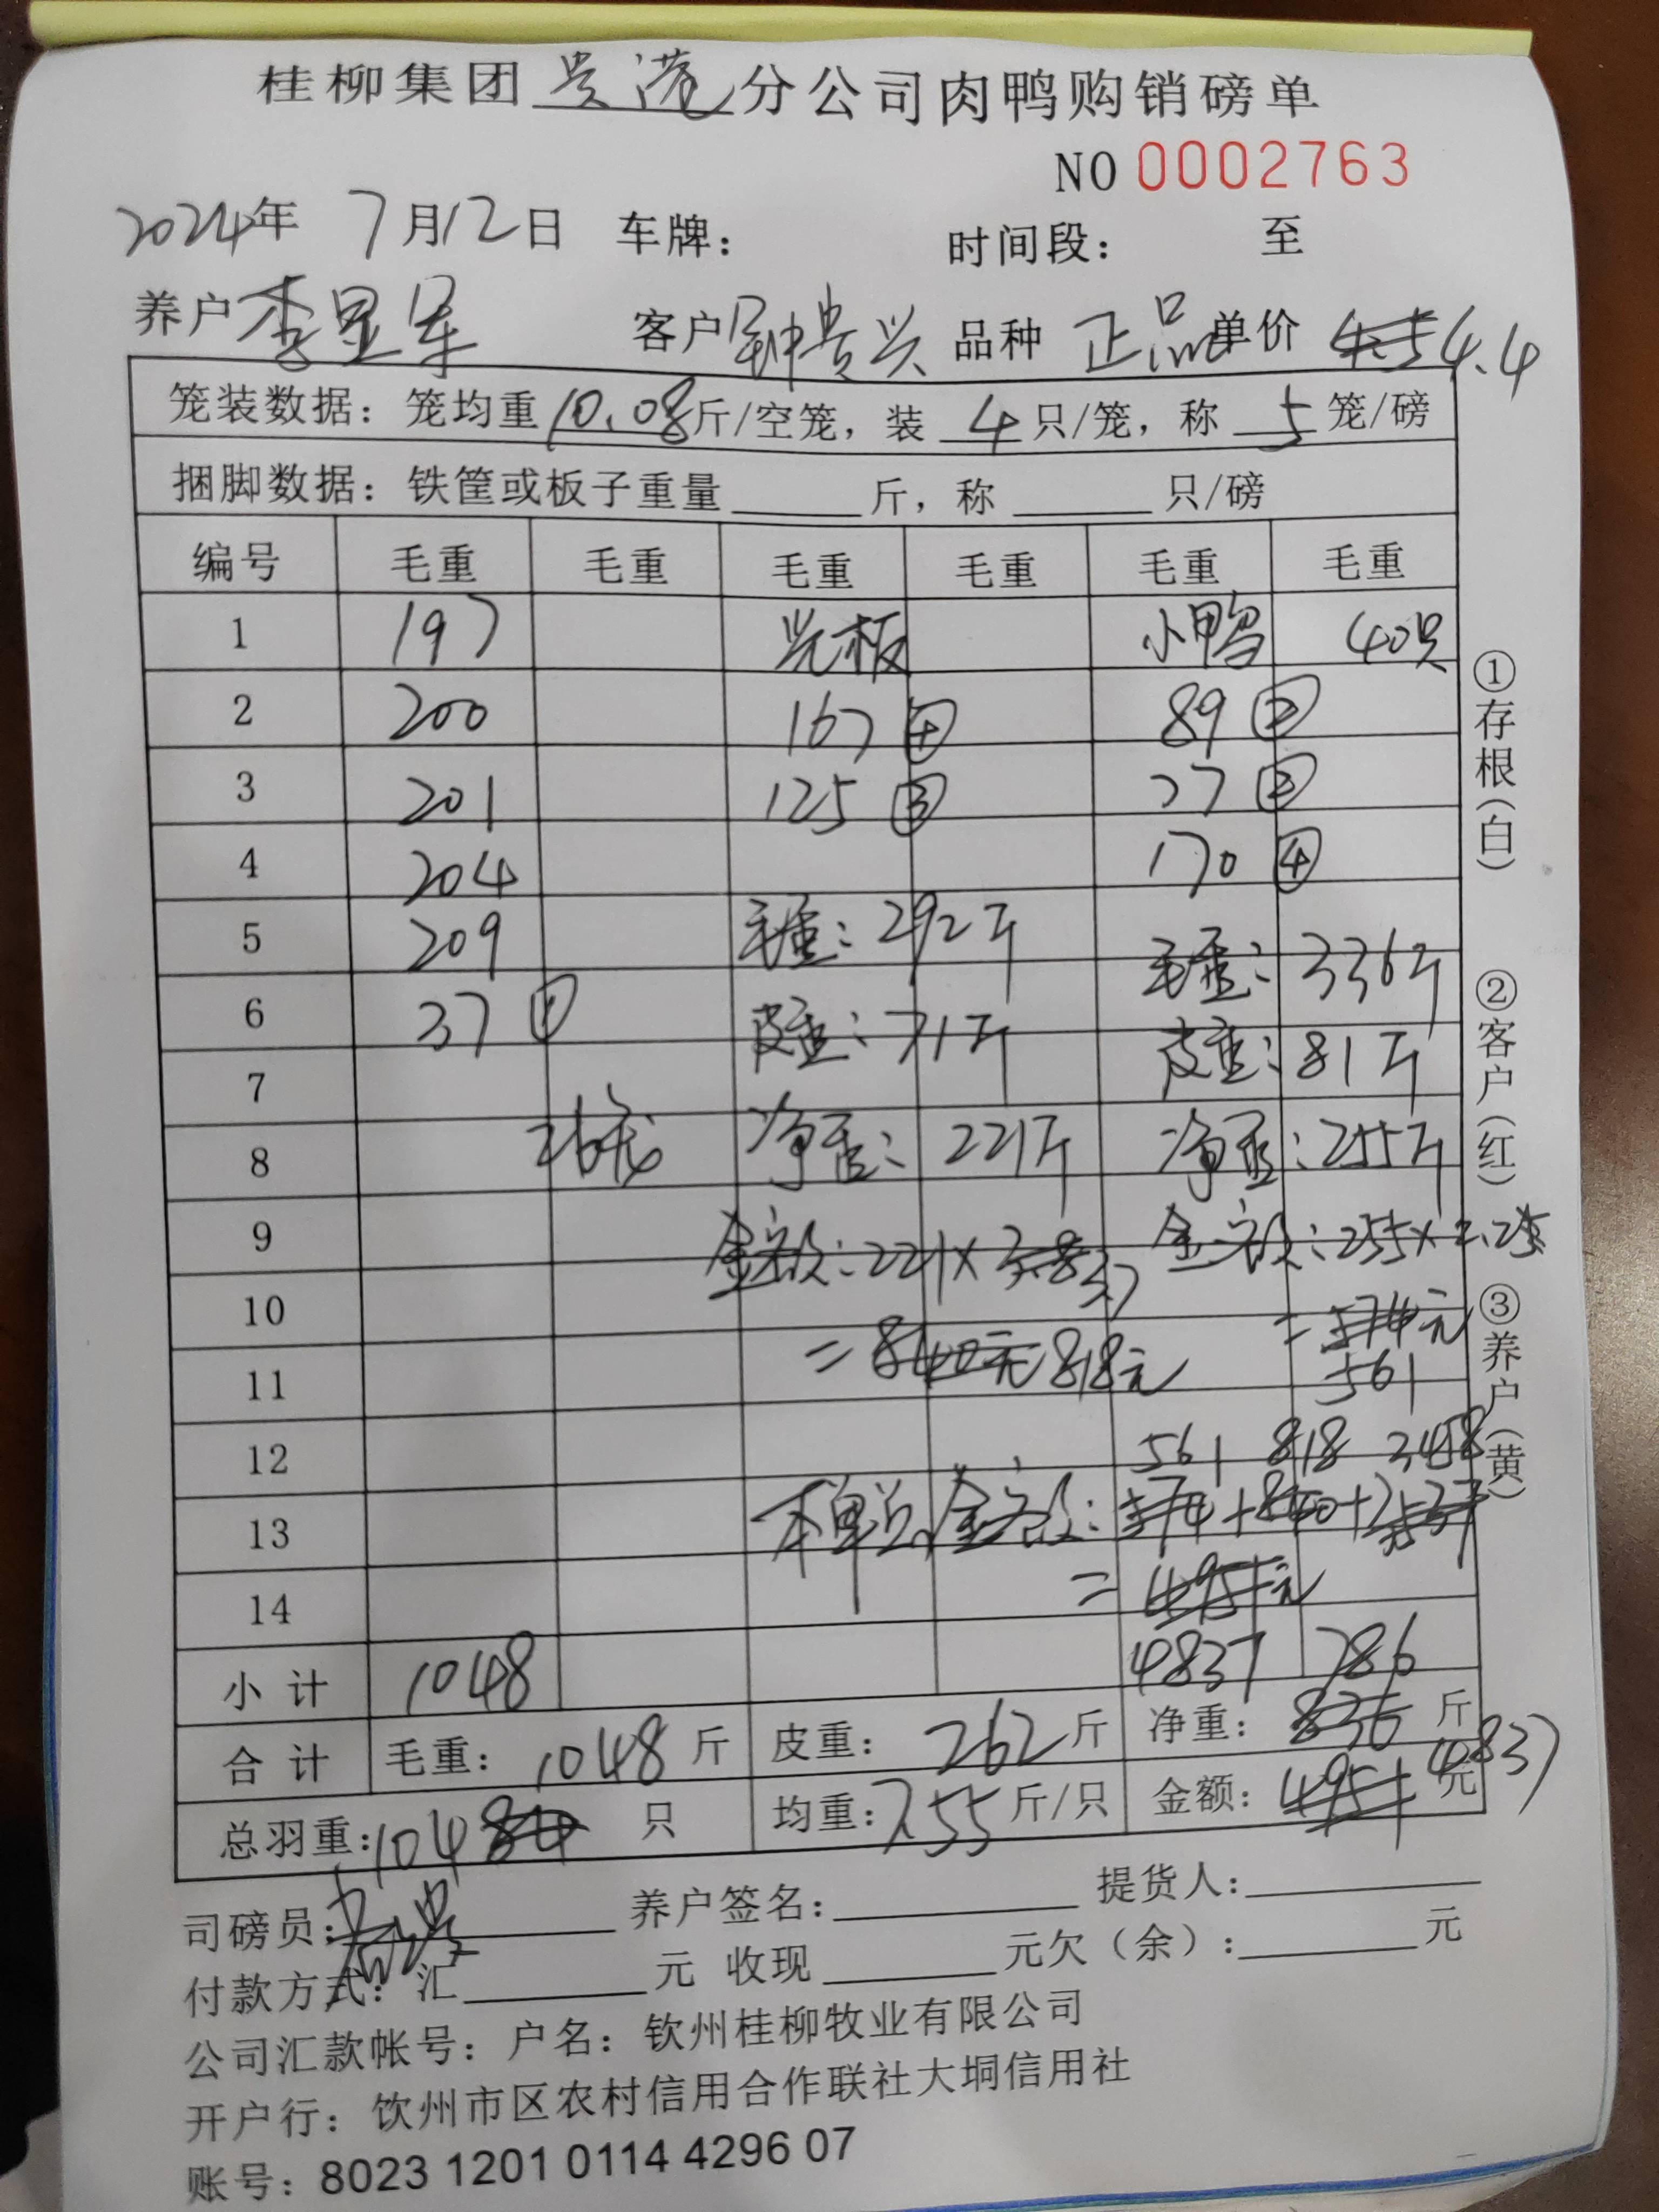 桂柳集团贵港分公司肉鸭购销磅单
NO 0002763
2024年 7月12日 车牌： 时间段： 至
养户 李显军 客户 钟贵兴 品种 正品 单价 4.55 4.4
笼装数据：笼均重 10.08 斤/空笼，装 4 只/笼，称 5 笼/磅
捆脚数据：铁筐或板子重量 斤，称 只/磅
编号 毛重 毛重 毛重 毛重 毛重 毛重
1 197 光板 小鸭 40只
2 200 167 ④ 89 ②
3 201 125 ③ 77 ②
4 204 170 ④
5 209 毛重：292斤 毛重：336斤
6 37 ① 皮重：71斤 皮重：81斤
7
8 净重：221斤 净重：255斤
9 金额：221×3.8 3.7 金额：255×2.25
10 =574元
11 =840元 818元 561
12 561 818 3458
13 本单总金额：574+840+
14 =4951元
小计 1048 4837 786
合计 毛重：1048斤 皮重：262斤 净重：836斤
总羽重：104 84 只 均重：7.55斤/只 金额：4951元 4837
司磅员： 养户签名： 提货人：
付款方式：汇 元 收现 元欠（余）： 元
公司汇款帐号：户名：钦州桂柳牧业有限公司
开户行：钦州市区农村信用合作联社大垌信用社
账号：8023 1201 0114 4296 07
①存根（白）
②客户（红）
③养户（黄）